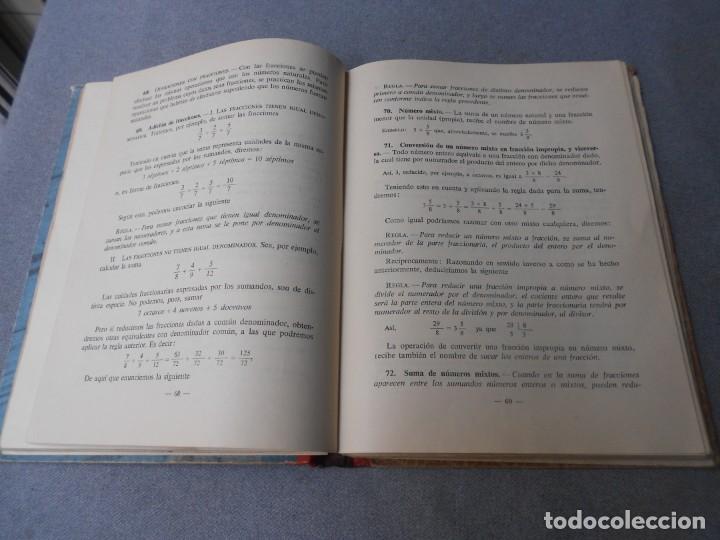 68. OPERACIONES CON FRACCIONES. — Con las fracciones se pueden
efectuar las mismas operaciones que con los números naturales. Para
resolver un problema cuyos datos sean fracciones, se practican las mismas
operaciones que habrían de efectuarse suponiendo que los números fueran
69. Adición de fracciones. — I LAS FRACCIONES TIENEN IGUAL DENO-
MINADOR. Tratemos, por ejemplo, de sumar las fracciones
3/7 + 2/7 + 5/7
Teniendo en cuenta que la suma representa unidades de la misma es-
pecie que las expresadas por los sumandos, diremos:
3 séptimos + 2 séptimos + 5 séptimos = 10 séptimos
o, en forma de fracciones,
3/7 + 2/7 + 5/7 = 10/7
Según esto, podremos enunciar la siguiente
REGLA. — Para sumar fracciones que tienen igual denominador, se
suman los numeradores, y a esta suma se le pone por denominador el
denominador común.
II LAS FRACCIONES NO TIENEN IGUAL DENOMINADOR. Sea, por ejemplo,
calcular la suma
7/8 + 4/9 + 5/12
Las unidades fraccionarias expresadas por los sumandos, son de dis-
tinta especie. No podemos, pues, sumar
7 octavos + 4 novenos + 5 doceavos
Pero si reducimos las fracciones dadas a común denominador, obten-
dremos otras equivalentes con denominador común, a las que podremos
aplicar la regla anterior. Es decir:
7/8 + 4/9 + 5/12 = 63/72 + 32/72 + 30/72 = 125/72,
De aquí que enunciemos la siguiente
— 68 —
REGLA. — Para sumar fracciones de distinto denominador, se reducen
primero a común denominador, y luego se suman las fracciones que resul-
ten conforme indica la regla precedente.
70. Número mixto. — La suma de un número natural y una fracción
menor que la unidad (propia), recibe el nombre de número mixto.
EJEMPLO: 3 + 5/8 que, abreviadamente, se escribe 3 5/8
71. Conversión de un número mixto en fracción impropia, y vicever-
sa. — Todo número entero equivale a una fracción con denominador dado,
la cual tiene por numerador el producto del entero por dicho denominador.
Así, 3, reducido, por ejemplo, a octavos, es igual a 3 × 8/8 = 24/8
Teniendo esto en cuenta y aplicando la regla dada para la suma, ten-
dremos:
3 5/8 = 3 + 5/8 = 24 + 5/8 = 29/8
Como igual podríamos razonar con otro mixto cualquiera, diremos:
REGLA. — Para reducir un número mixto a fracción, se suma al nu-
merador de la parte fraccionaria, el producto del entero por el deno-
minador.
Recíprocamente: Razonando en sentido inverso a como se ha hecho
anteriormente, deduciríamos la siguiente
REGLA. — Para reducir una fracción impropia a número mixto, se
divide el numerador por el denominador; el cociente entero que resulte
será la parte entera del número mixto, y la parte fraccionaria tendrá por
numerador al resto de la división y por denominador, al divisor.
Así, 29/8 = 3 5/8 ya que 29 | 8
5 3
La operación de convertir una fracción impropia en su número mixto,
recibe también el nombre de sacar los enteros de una fracción.
72. Suma de números mixtos. — Cuando en la suma de fracciones
aparecen entre los sumandos números enteros o mixtos, pueden redu-
— 69 —
todocoleccion.net